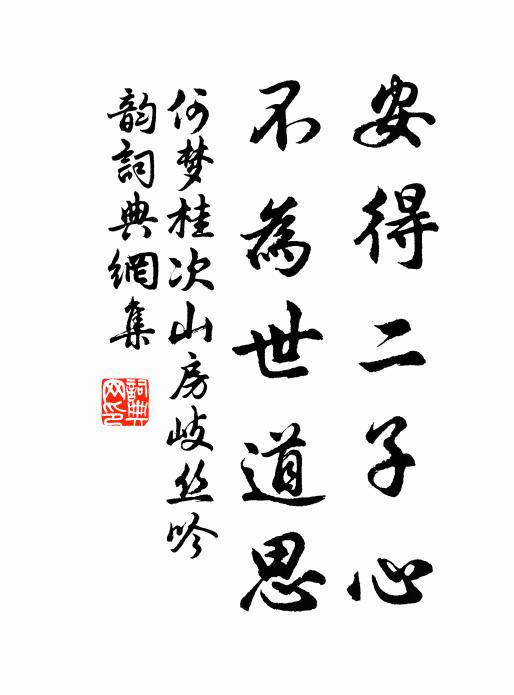 安得二子心
不為世道思
何梦桂次山房岐丝吟
韵詞典網集
詞典网印